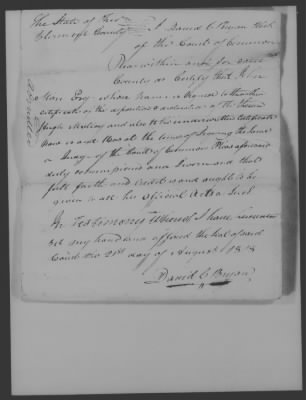 The State of Ohio
Clermont County } I David C Bryan Clerk
of the Court of Common
Pleas within and for said
County do Certify that John
Morris Esqr whose name is signed to the within
certificate of the deposition & declaration of
Hugh and also to his certificate
was and is at the time of Signing the same
a Judge of the Court of Common Pleas aforesaid
duly commissioned and Sworn and that
full faith and credit is and ought to be
given to all his official Acts as Such
In Testimony Whereof I have hereunto
set my hand and affixed the Seal of said
Court the 21st day of August 1818
David C Bryan